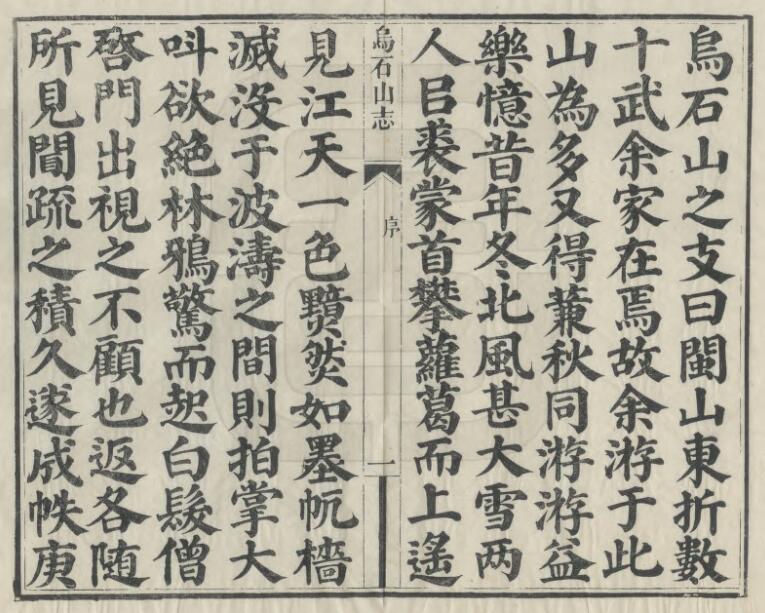 烏石山之支曰閩山東折數
十武余家在焉故余游于此
山為多又得蒹秋同游游益
樂憶昔年冬北風甚大雪两
人㠯裘蒙首攀蘿葛而上遙
烏石山志
序
一
見江天一色然如墨帆檣
滅没于波濤之間則拍掌大
呌欲絶林鴉驚而起白髮僧
啓門出視之不顧也返各随
所見聞疏之積久遂成帙庚